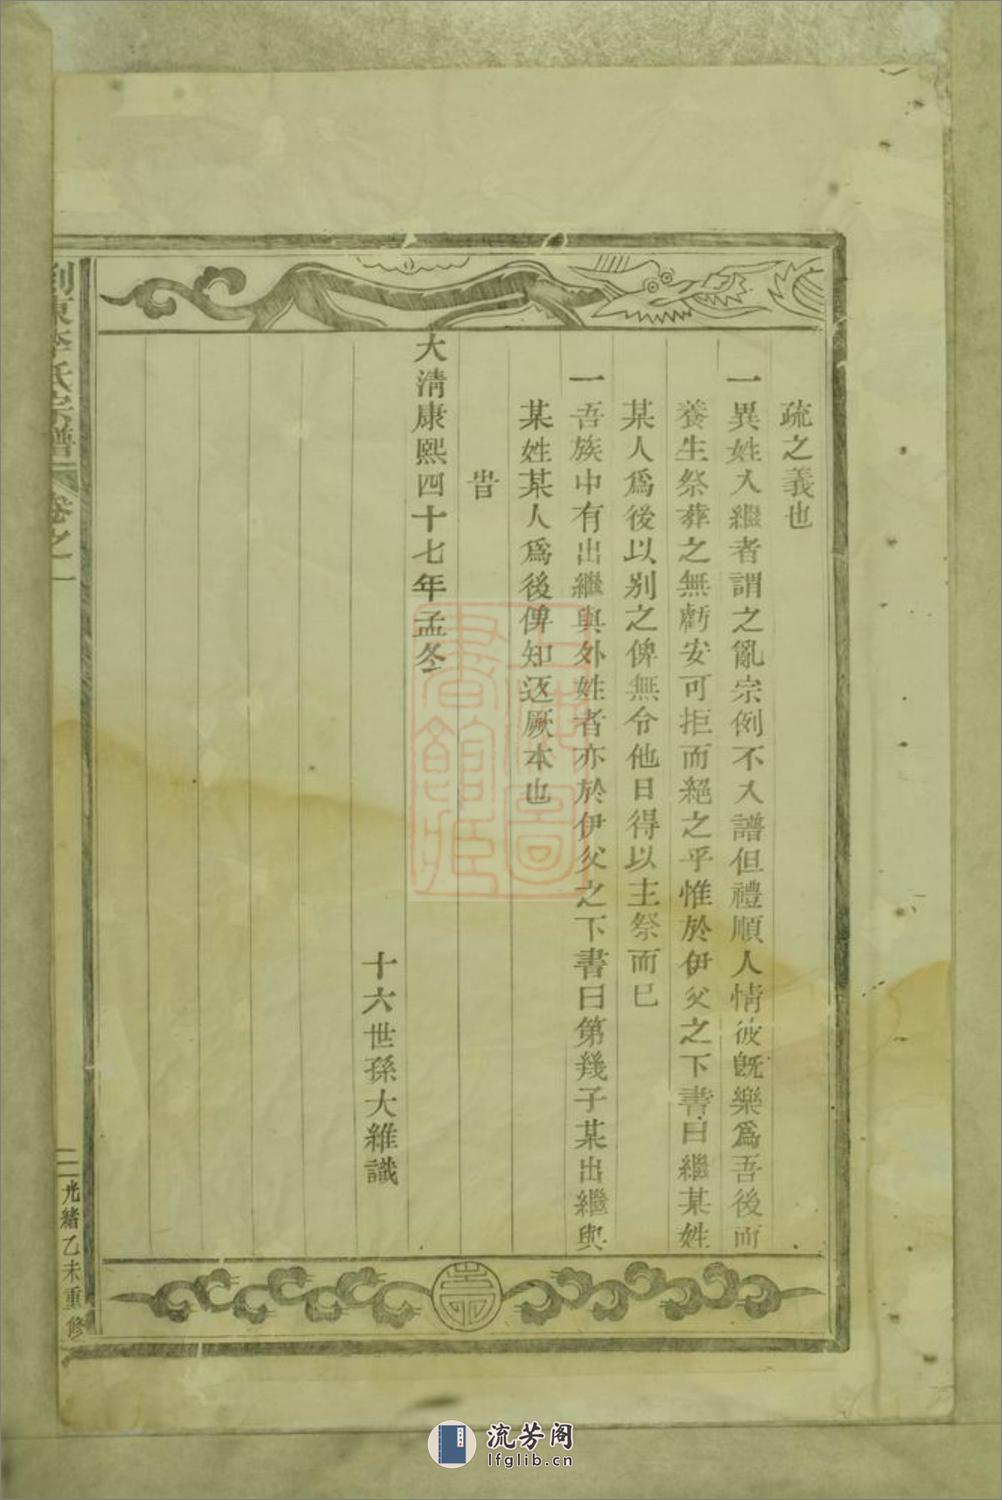 疏之義也
一異姓入繼者謂之亂宗例不入譜但禮順人情彼旣樂爲吾後而
養生祭葬之無虧安可拒而絕之乎惟於伊父之下書曰繼某姓
某人爲後以别之俾無令他日得以主祭而已
一吾族中有出繼與外姓者亦於伊父之下書曰第幾子某出繼與
某姓某人爲後俾知返厥本也
旹
大淸康熙四十七年孟冬
十六世孫大維識
東李氏宗譜
卷之一
光緒乙未重修
上海圖書館藏
流芳阁
lfglib.cn